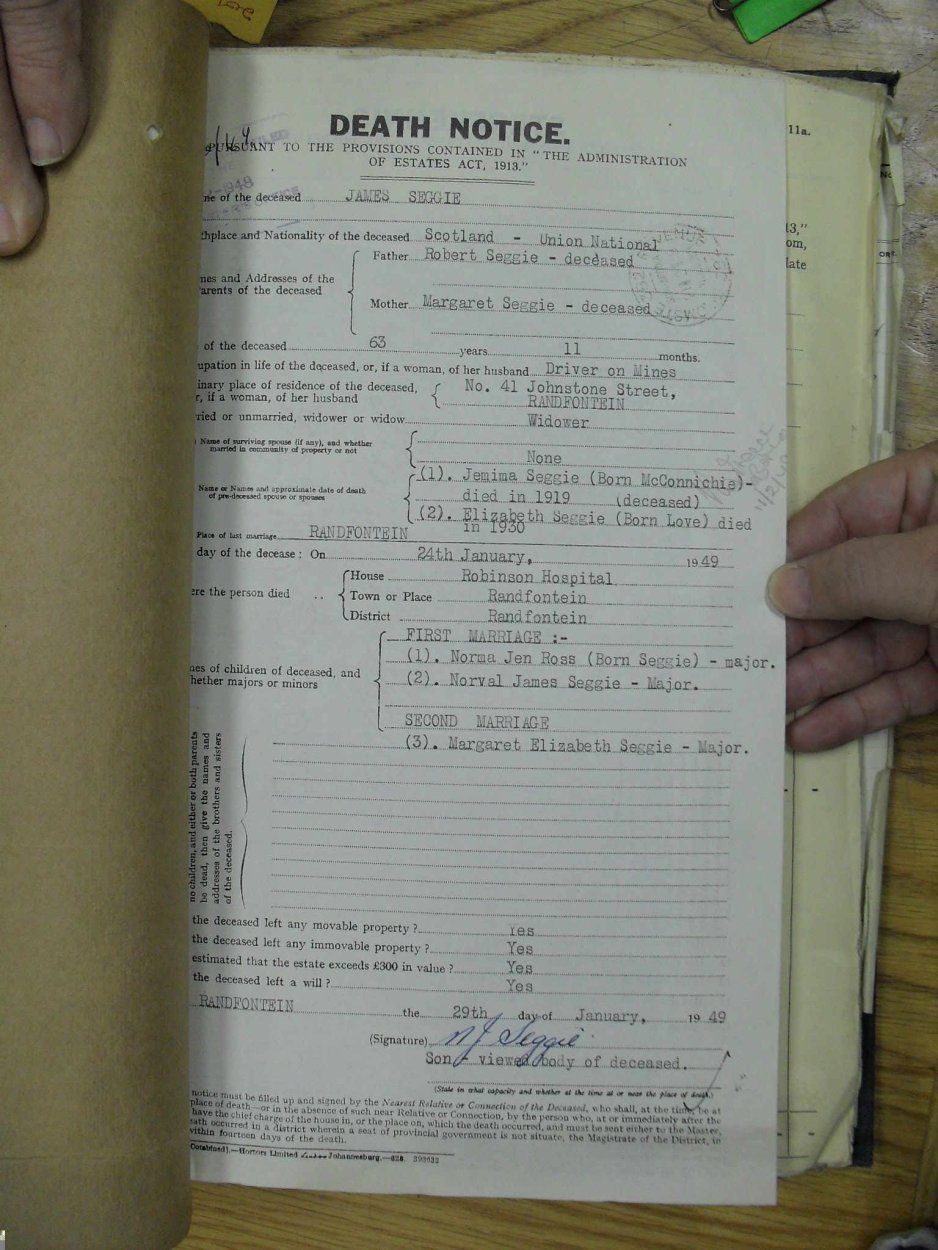 DEATH NOTICE.
PURSUANT TO THE PROVISIONS CONTAINED IN "THE ADMINISTRATION
OF ESTATES ACT, 1913."
11a.
me of the deceased JAMES SEGGIE
thplace and Nationality of the deceased Scotland - Union National
mes and Addresses of the
arents of the deceased
Father Robert Seggie - deceased
Mother Margaret Seggie - deceased
of the deceased 63 years 11 months.
upation in life of the deceased, or, if a woman, of her husband Driver on Mines
inary place of residence of the deceased,
r, if a woman, of her husband
No. 41 Johnstone Street,
RANDFONTEIN
ried or unmarried, widower or widow Widower
Name of surviving spouse (if any), and whether
married in community of property or not
None
Name or Names and approximate date of death
of pre-deceased spouse or spouses
(1). Jemima Seggie (Born McConnichie)-
died in 1919 (deceased)
(2). Elizabeth Seggie (Born Love) died
in 1930
Place of last marriage RANDFONTEIN
day of the decease: On 24th January, 1949
ere the person died ..
House Robinson Hospital
Town or Place Randfontein
District Randfontein
mes of children of deceased, and
hether majors or minors
FIRST MARRIAGE :-
(1). Norma Jen Ross (Born Seggie) - major.
(2). Norval James Seggie - Major.
SECOND MARRIAGE
(3). Margaret Elizabeth Seggie - Major.
no children, and either or both parents
be dead, then give the names and
addresses of the brothers and sisters
of the deceased.
the deceased left any movable property ? Yes
the deceased left any immovable property ? Yes
estimated that the estate exceeds £300 in value ? Yes
the deceased left a will ? Yes
RANDFONTEIN the 29th day of January, 1949
(Signature) NJ Seggie
Son - viewed body of deceased.
(State in what capacity and whether at the time at or near the place of death.)
notice must be filled up and signed by the Nearest Relative or Connection of the Deceased, who shall, at the time, be at
place of death—or in the absence of such near Relative or Connection, by the person who, at or immediately after the
have the chief charge of the house in, or the place on, which the death occurred, and must be sent either to the Master,
eath occurred in a district wherein a seat of provincial government is not situate, the Magistrate of the District, in
within fourteen days of the death.
Obtainable].—Hortors Limited Johannesburg.—828. 393032
13,"
om,
late